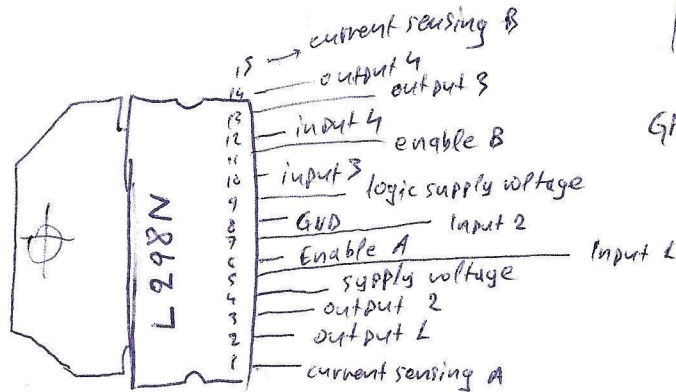 15 → current sensing B
14 output 4
13 output 3
12 input 4
11 enable B
10 input 3
9 logic supply voltage
8 GND
7 Input 2
6 Enable A
5 Input 1
4 sypply voltage
3 output 2
2 output 1
1 current sensing A
L298N